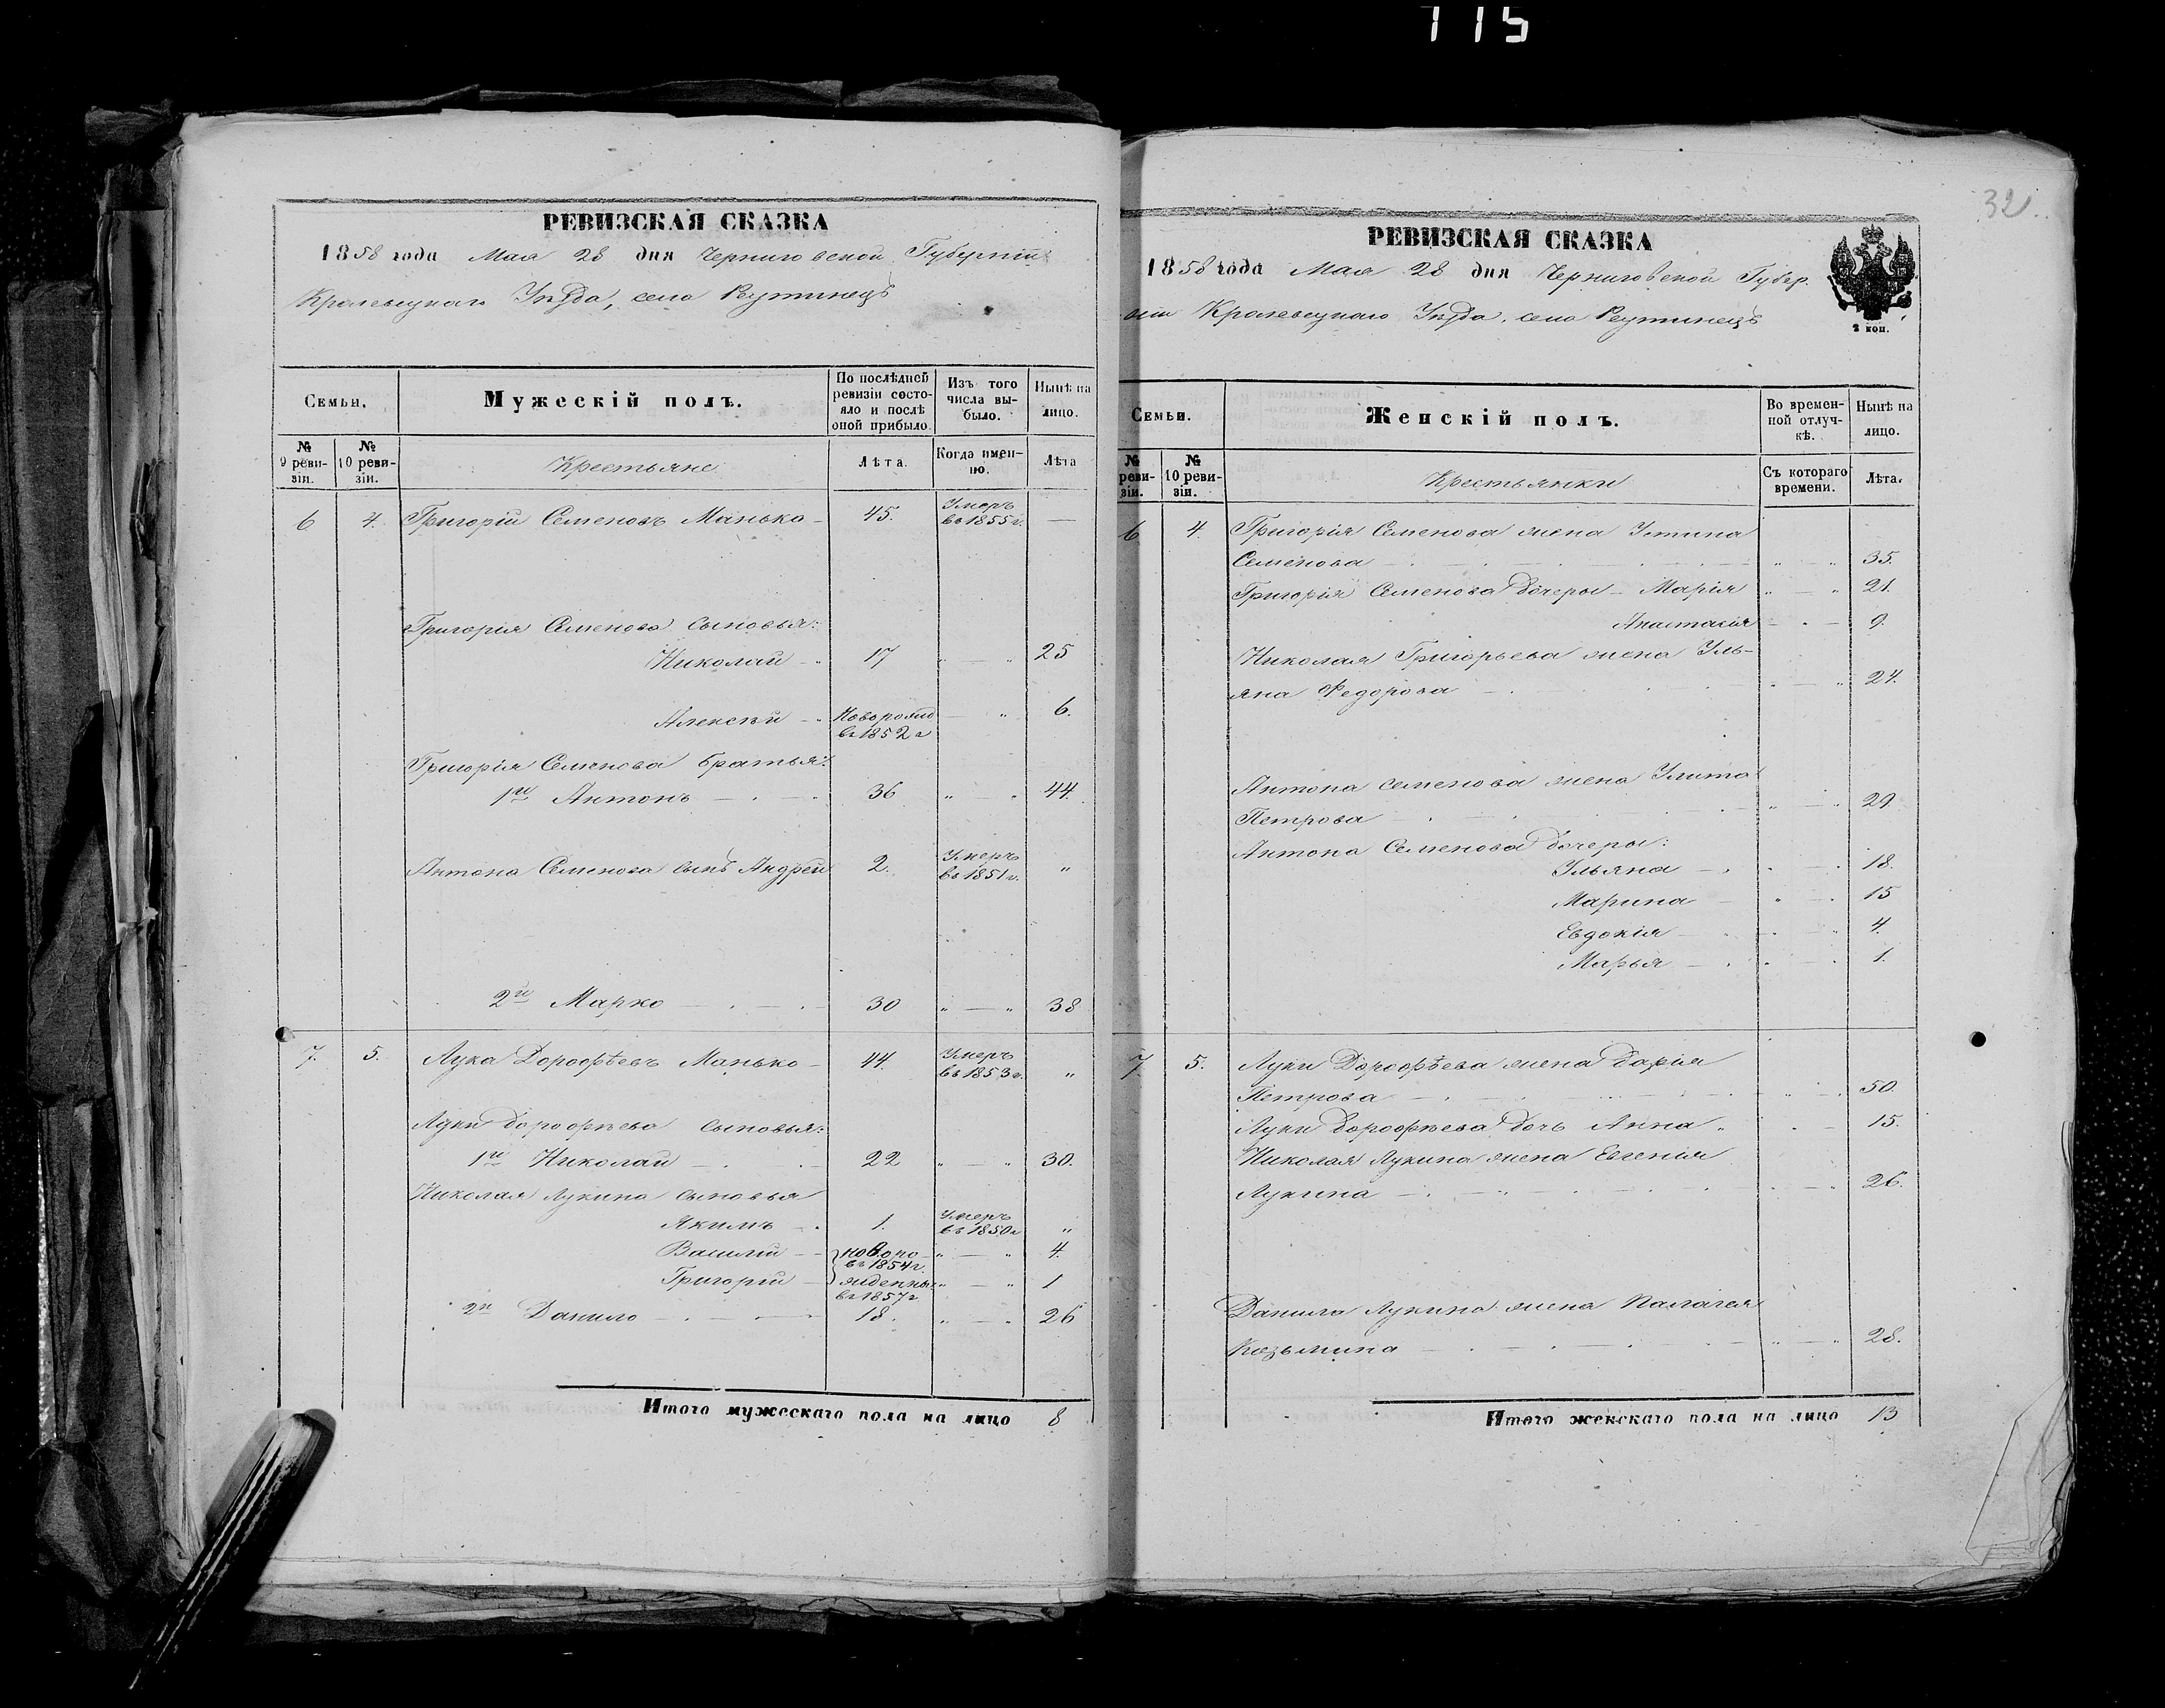 115
РЕВИЗСКАЯ СКАЗКА
1858 года Мая 28 дня Черниговской Губерніи
Кролевецкаго Уѣзда, села Реутинецъ
Семьи.
Мужескій полъ.
По послѣдней ревизіи состояло и послѣ оной прибыло.
Изъ того числа выбыло.
Нынѣ на лицо.
№ 9 ревизіи.
№ 10 ревизіи.
Крестьяне
Лѣта.
Когда именно.
Лѣта
6 4. Григорій Семеновъ Манько 45. Умеръ въ 1855 г. —
Григорія Семенова сыновья:
Николай 17 " — " 25
Алексѣй Новорожд въ 1852 г — " 6.
Григорія Семенова братья:
1й Антонъ 36 " — " 44.
Антона Семенова сынъ Андрей 2. Умеръ въ 1851 г. "
2й Марко 30 " — " 38
7. 5. Лука Дорофѣевъ Манько 44. Умеръ въ 1853 г. "
Луки Дорофѣева сыновья:
1й Николай 22 " — " 30.
Николая Лукина сыновья
Якимъ 1. Умеръ въ 1850 г "
Василій новоро- въ 1854 г. " — " 4.
Григорій жденны въ 1857 г " — " 1
2й Данило 18. " — " 26
Итого мужескаго пола на лицо 8
32
РЕВИЗСКАЯ СКАЗКА
1858 года Мая 28 дня Черниговской Губер.
ніи Кролевецкаго Уѣзда, села Реутинецъ
2 коп.
Семьи.
Женскій полъ.
Во временной отлучкѣ.
Нынѣ на лицо.
№ ревизіи.
№ 10 ревизіи.
Крестьянки
Съ котораго времени.
Лѣта.
6 4. Григорія Семенова жена Устина
Семенова " — " 35.
Григорія Семенова дочери — Марія " — " 21.
Анастасія — " — 9.
Николая Григорьева жена Уль-
яна Федорова " — " 24.
Антона Семенова жена Улита
Петрова " — " 29
Антона Семенова дочери:
Ульяна 18.
Марина 15
Евдокія 4.
Марья 1.
7 5. Луки Дорофѣева жена Дарія
Петрова 50.
Луки Дорофѣева дочь Анна 15.
Николая Лукина жена Евгенія
Лукина 26.
Данила Лукина жена Палагея
Козьмина " — " 28.
Итого женскаго пола на лицо 13